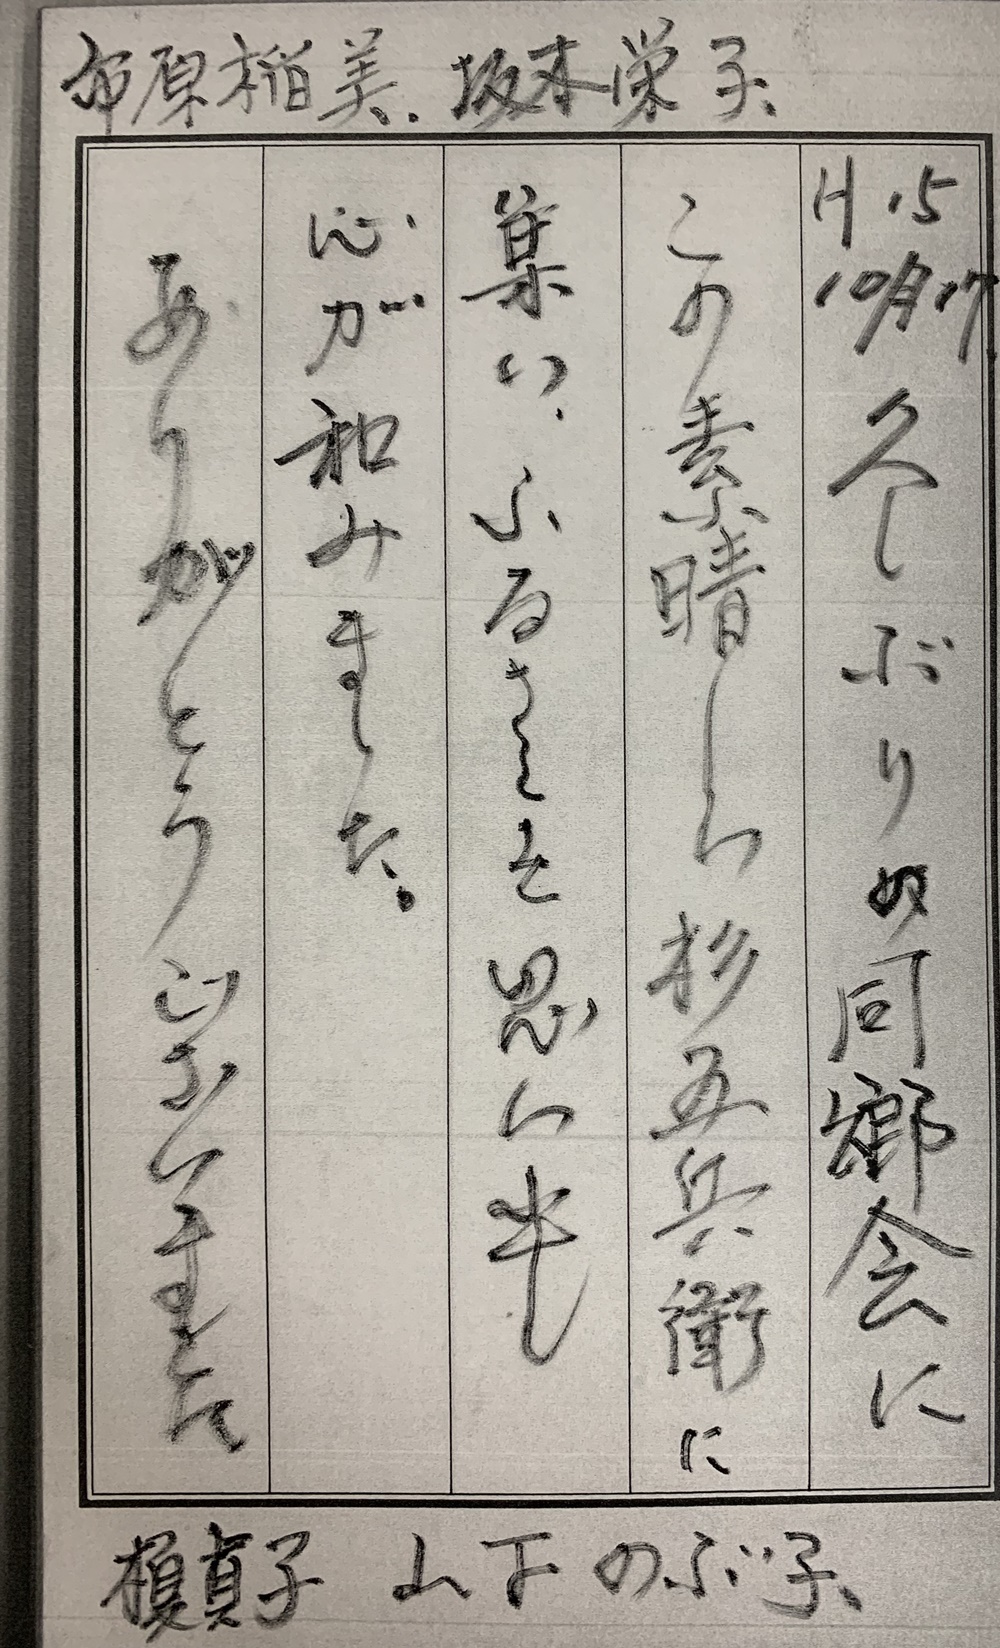 市原稲美.坂本栄子、
H.15
10月17
久しぶりの同郷会に
この素晴しい杉五兵衛に
集い、ふるさとを思い出し
心が和みました。
ありがとうございました
榎貞子 山下のぶ子、